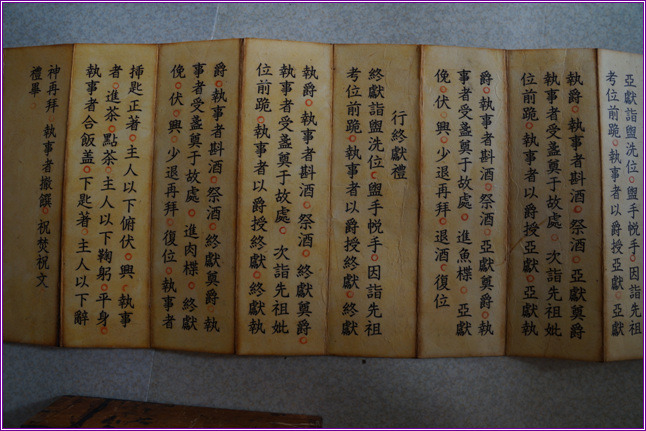 亞獻詣盥洗位○盥手帨手○因詣先祖
考位前跪○執事者以爵授亞獻○亞獻
執爵○執事者斟酒○祭酒○亞獻奠爵○
執事者受盞奠于故處○次詣先祖妣
位前跪○執事者以爵授亞獻○亞獻執
爵○執事者斟酒○祭酒○亞獻奠爵○執
事者受盞奠于故處○進魚楪○亞獻
俛○伏○興○少退再拜○退酒○復位
行終獻禮
終獻詣盥洗位○盥手帨手○因詣先祖
考位前跪○執事者以爵授終獻○終獻
執爵○執事者斟酒○祭酒○終獻奠爵○
執事者受盞奠于故處○次詣先祖妣
位前跪○執事者以爵授終獻○終獻執
爵○執事者斟酒○祭酒○終獻奠爵○執
事者受盞奠于故處○進肉楪○終獻
俛○伏○興○少退再拜○復位○執事者
揷匙正著○主人以下俯伏○興○執事
者○進茶○點茶○主人以下鞠躬○平身○
執事者合飯盖○下匙著○主人以下辭
神再拜○執事者撤饌○祝焚祝文
禮畢○